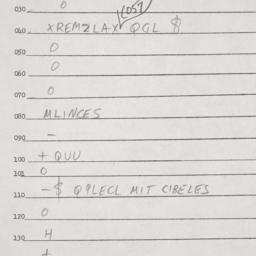 030 0
COST
040 XREMZLAX QGL $
050 0
060 0
070 0
080 MLINCES
090 -
100 + QUU
101 0
110 -$ Q9LECL MIT CIBELES
120 0
130 H
+